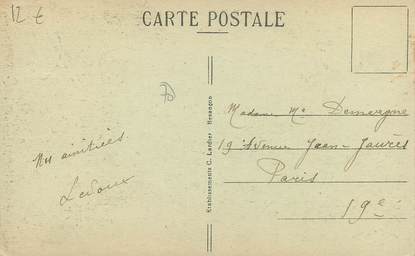 12 €
CARTE POSTALE
70
Mes amitiés
Ledoux
Etablissements C. Lardier Besançon
Madame Me Demorgne
19 Avenue Jean-Jaurès
Paris
19e